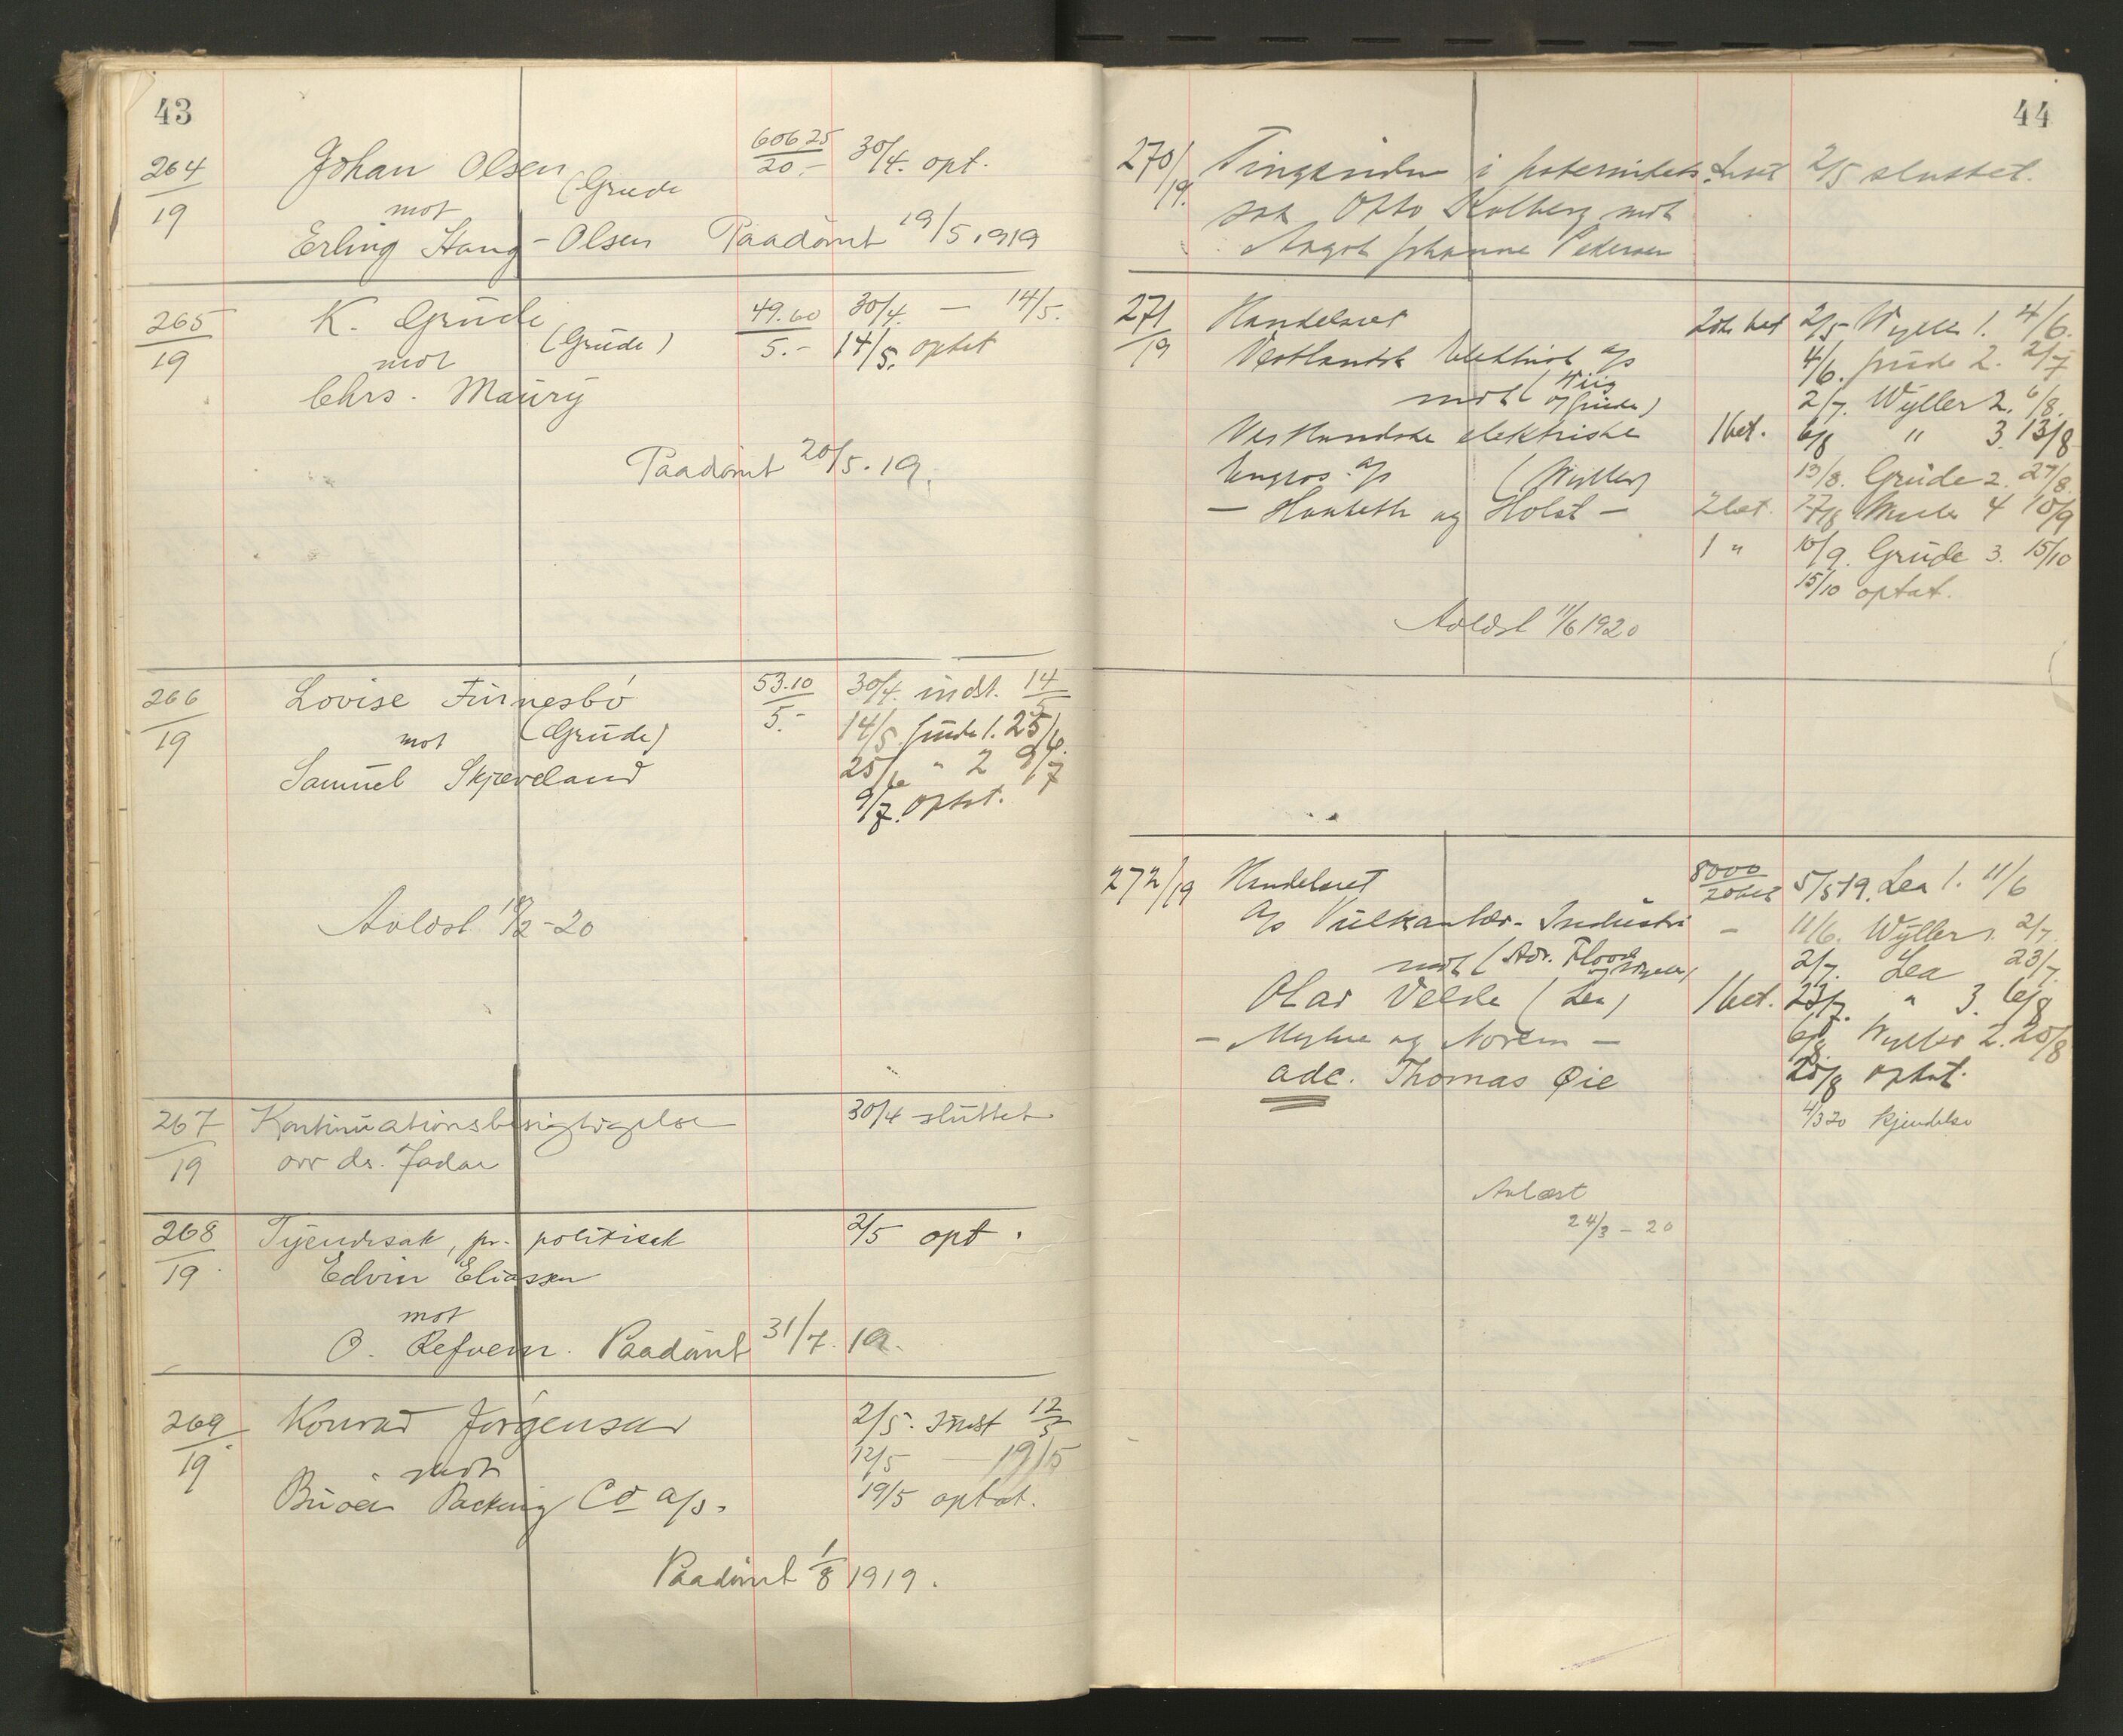 43
264/19 Johan Olsen (Grude 606.25/20.- 30/4. opt.
mot
Erling Haug-Olsen Paadømt 19/5 1919
265/19 K. Grude 49.60/5.- 30/4. — 14/5.
mot (Grude) 14/5. optat
Chrs. Maury
Paadømt 20/5. 19.
266/19 Lovise Furnesbø 53.10/5.- 30/4. indst. 14/5
mot (Grude) 14/5 Grude 1. 25/6.
Samuel Skjæveland 25/6 " 2 9/7
9/7. Optat.
Avlæst 18/2-20
267/19 Kontinuationsbesigtigelse 30/4 sluttet
ovr ds. Jadar
268/19 Tyendesak, pr. politisak 2/5 opt.
Edvin Eliassen
mot
O. Refvem. Paadømt 31/7. 19.
269/19 Konrad Jørgensen 2/5. Indst 12/5
mot 12/5 — 19/5
Buøen Packing Co a/s. 19/5 optat.
Paadømt 1/8 1919.
44
270/19. i paternitets 2/5 sluttet.
sak Otto Kolberg mot
Johanne Pedersen
271/19 Handelsret 2 bet 2/5 Wyller 1. 4/6.
Vestlandsk Elektrisk a/s 4/6. Grude 2. 2/7
mot (Wiig og Grude) 2/7. Wyller 2. 6/8.
Vestlandske elektriske 1 bet. 6/8 " 3. 13/8
Engros a/s (Wyller) 13/8. Grude 2. 27/8.
— og Holst — 2 bet. 27/8 Wyller 4 10/9
1 " 10/9. Grude 3. 15/10
15/10 optat.
Avlæst 11/6 1920
272/19 Handelsret 8000/20 bet 5/5 19. Lea 1. 11/6
A/s Vulkaniser-Industri — 11/6. Wyller 1. 2/7.
mot (Adv. Flood og Wyller) 2/7. Lea 23/7.
Olav Velde (Lea) 1 bet. 23/7. " 3. 6/8
— Myhre og Norem — 6/8. Wyller 2. 20/8
adc. Thomas Øie 20/8 optat.
4/3 20 kjendelse
Avlæst
24/3-20